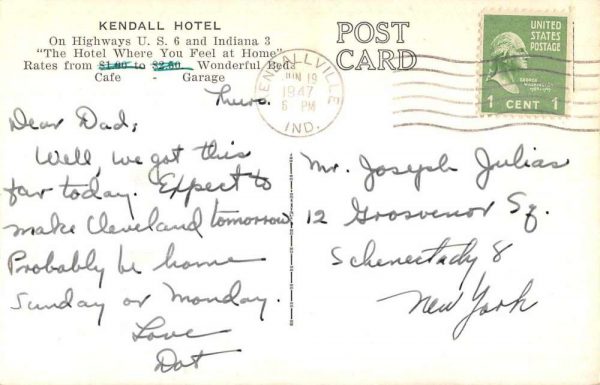 KENDALL HOTEL
On Highways U. S. 6 and Indiana 3
"The Hotel Where You Feel at Home"
Rates from $1.00 to $2.50 Wonderful Beds
Cafe Garage
POST
CARD
KENDALLVILLE
JUN 19
1947
6 PM
IND.
UNITED
STATES
POSTAGE
GEORGE
WASHINGTON
1 CENT 1
Thurs.
Dear Dad,
Well, we got this
far today. Expect to
make Cleveland tomorrow
Probably be home
Sunday or Monday.
Love
Dot
Mr. Joseph Julias
12 Grosvenor Sq.
Schenectady 8
New York